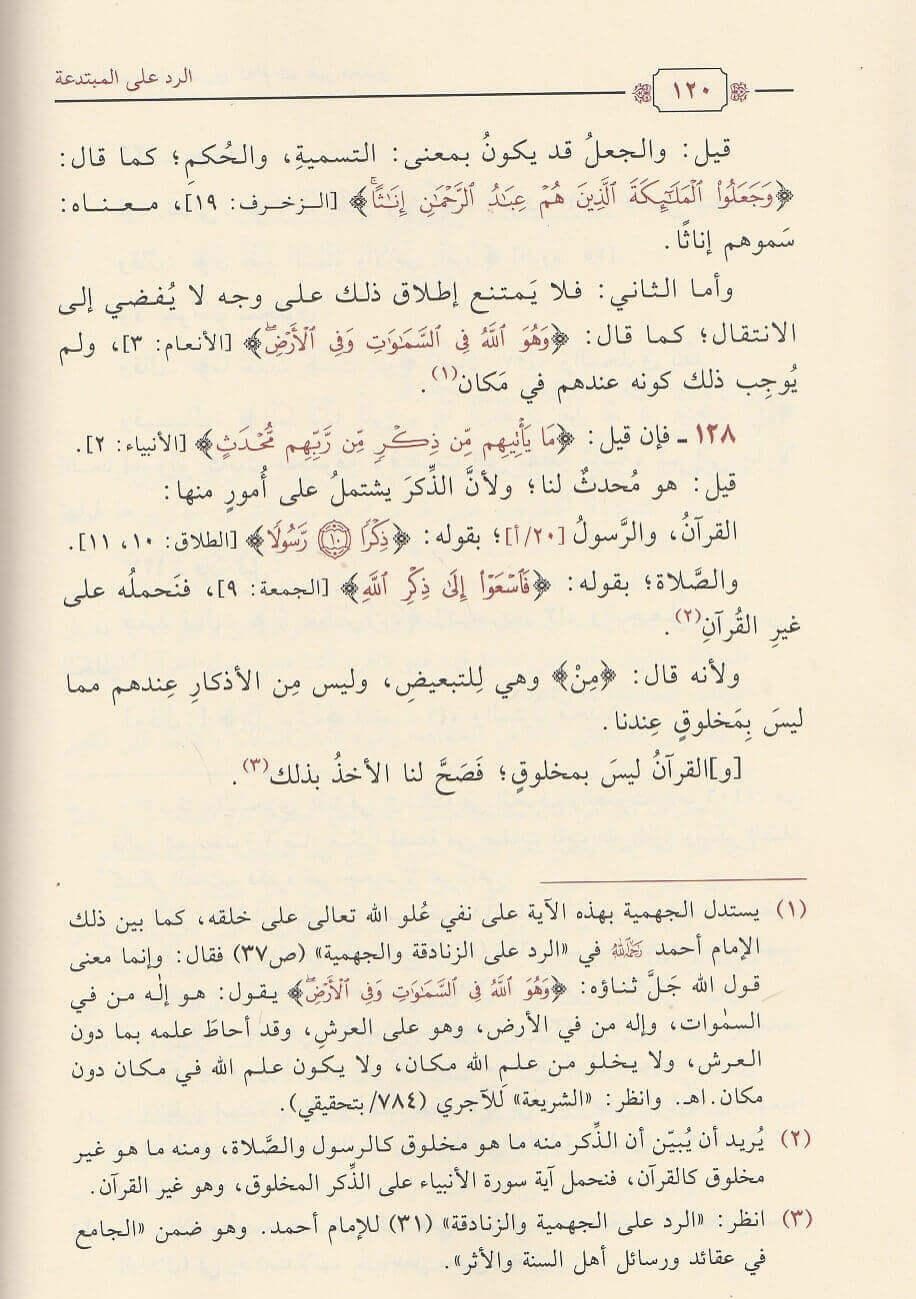 الرد على المبتدعة
١٢٠
قيل: والجعلُ قد يكونُ بمعنى: التسميةِ، والحُكمِ؛ كما قال:
﴿وَجَعَلُوا۟ ٱلْمَلَـٰٓئِكَةَ ٱلَّذِينَ هُمْ عِبَـٰدُ ٱلرَّحْمَـٰنِ إِنَـٰثًا﴾ [الزخرف: ١٩]، معناه:
سَموهم إناثًا.
وأما الثاني: فلا يَمتنع إطلاق ذلك على وجه لا يُفضي إلى
الانتقال؛ كما قال: ﴿وَهُوَ ٱللَّهُ فِى ٱلسَّمَـٰوَٰتِ وَفِى ٱلْأَرْضِ﴾ [الأنعام: ٣]، ولم
يُوجِب ذلك كونه عندهم في مَكان(١).
١٢٨ ـ فإن قيل: ﴿مَا يَأْتِيهِم مِّن ذِكْرٍ مِّن رَّبِّهِم مُّحْدَثٍ﴾ [الأنبياء: ٢].
قيل: هو مُحدثٌ لنا؛ ولأنَّ الذِّكرَ يشتملُ على أُمورٍ منها:
القرآنُ، والرَّسولُ [٢٠/أ]؛ بقوله: ﴿ذِكْرًا ۝١٠ رَّسُولًا﴾ [الطلاق: ١٠، ١١].
والصَّلاة؛ بقوله: ﴿فَٱسْعَوْا۟ إِلَىٰ ذِكْرِ ٱللَّهِ﴾ [الجمعة: ٩]، فنَحملُه على
غيرِ القُرآنِ(٢).
ولأنه قال: ﴿مِنْ﴾ وهي لِلتبعيضِ، وليس مِن الأذكارِ عِندهم مما
ليسَ بِمَخلوقٍ عِندنا.
[و]القرآنُ ليسَ بمخلوقٍ؛ فَصَحَّ لنا الأخذُ بذلك(٣).
(١) يستدل الجهمية بهذه الآية على نفي عُلو الله تعالى على خلقه، كما بين ذلك
الإمام أحمد رَحِمَهُ اللهُ في «الرد على الزنادقة والجهمية» (ص٣٧) فقال: وإنما معنى
قول الله جَلَّ ثناؤه: ﴿وَهُوَ ٱللَّهُ فِى ٱلسَّمَـٰوَٰتِ وَفِى ٱلْأَرْضِ﴾ يقول: هو إلٰه من في
السمٰوات، وإله من في الأرض، وهو على العرشِ، وقد أحاطَ علمه بما دون
العرش، ولا يخلو من علمِ الله مكان، ولا يكون علم الله في مكان دون
مكان.اهـ. وانظر: «الشريعة» لِلآجري (٧٨٤/ بتحقيقي).
(٢) يُريد أن يُبيّن أن الذِّكر منه ما هو مخلوق كالرسول والصَّلاة، ومنه ما هو غير
مخلوق كالقرآن، فنحمل آية سورة الأنبياء على الذِّكر المخلوق، وهو غير القرآن.
(٣) انظر: «الرد على الجهمية والزنادقة» (٣١) للإمام أحمد. وهو ضمن «الجامع
في عقائد ورسائل أهل السنة والأثر».